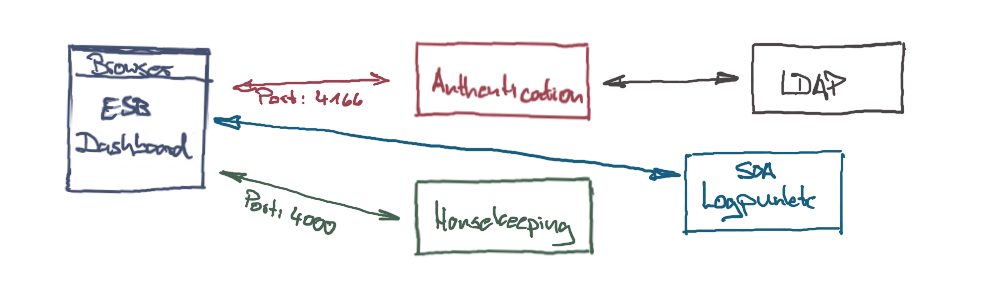 Browser
ESB
Dashboard
Port: 4166
Authentication
LDAP
SOA
Logpunkte
Port: 4000
Housekeeping